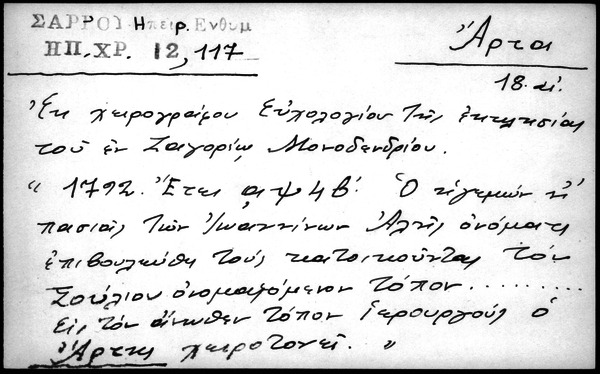 ΣΑΡΡΟΥ Ηπειρ. Ενθυμ
ΗΠ. ΧΡ. 12, 117
Ἄρται
18. αἰ.
Ἐκ χειρογράφου Εὐχολογίου τῆς ἐκκλησίας
τοῦ ἐν Ζαγορίῳ Μονοδενδρίου.
" 1792. Ἔτει αψ4β'. Ὁ ἡγεμὼν κ'
πασιᾶς τῶν Ἰωαννίνων Ἀλῆς ὀνόματι
ἐπιβουλεύθη τοὺς κατοικοῦντας τὸν
Σούλιον ὀνομαζόμενον τόπον .........
Εἰς τὸν ἄνωθεν τόπον ἱερουργοὺς ὁ
Ἄρτης χειροτονεῖ. "